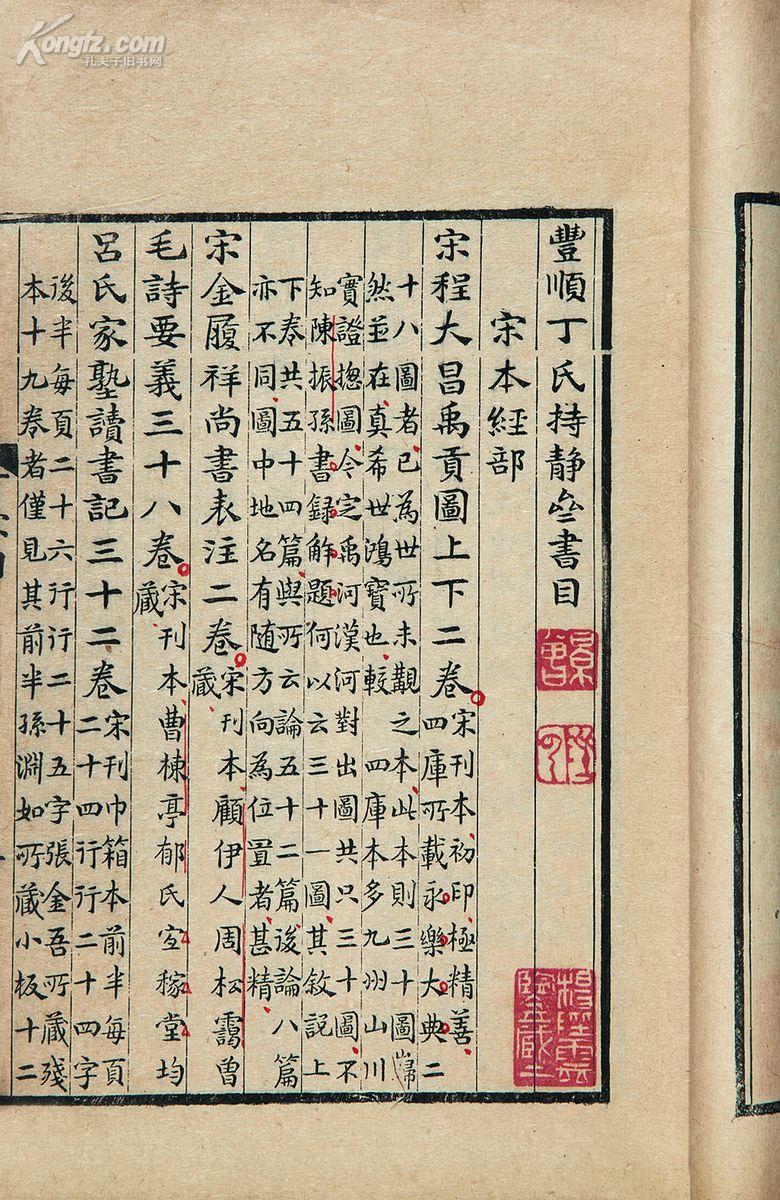 Kongfz.com
孔夫子旧书网
豐順丁氏持静亝書目
宋本經部
宋程大昌禹貢圖上下二卷
宋刊本初印極精善
四庫所載永樂大典二
十八圖者已為世所未覯之本此本則三十圖歸
然並在真希世鴻寶也較四庫本多九州山川
實證揔圖今定禹河漢河對出圖共只三十圖不
知陳振孫書録解題何以云三十一圖其敘説上
下卷共五十四篇與所云論五十二篇後論八篇
亦不同圖中地名有随方向為位置者甚精
宋金履祥尚書表注二卷
宋刊本顧伊人周松靄曾
藏
毛詩要義三十八卷
宋刊本曹棟亭郁氏宜稼堂均
藏
呂氏家塾讀書記三十二卷
宋刊巾箱本前半每頁
二十四行行二十四字
後半每頁二十六行行二十五字張金吾所藏殘
本十九卷者僅見其前半孫淵如所藏小板十二